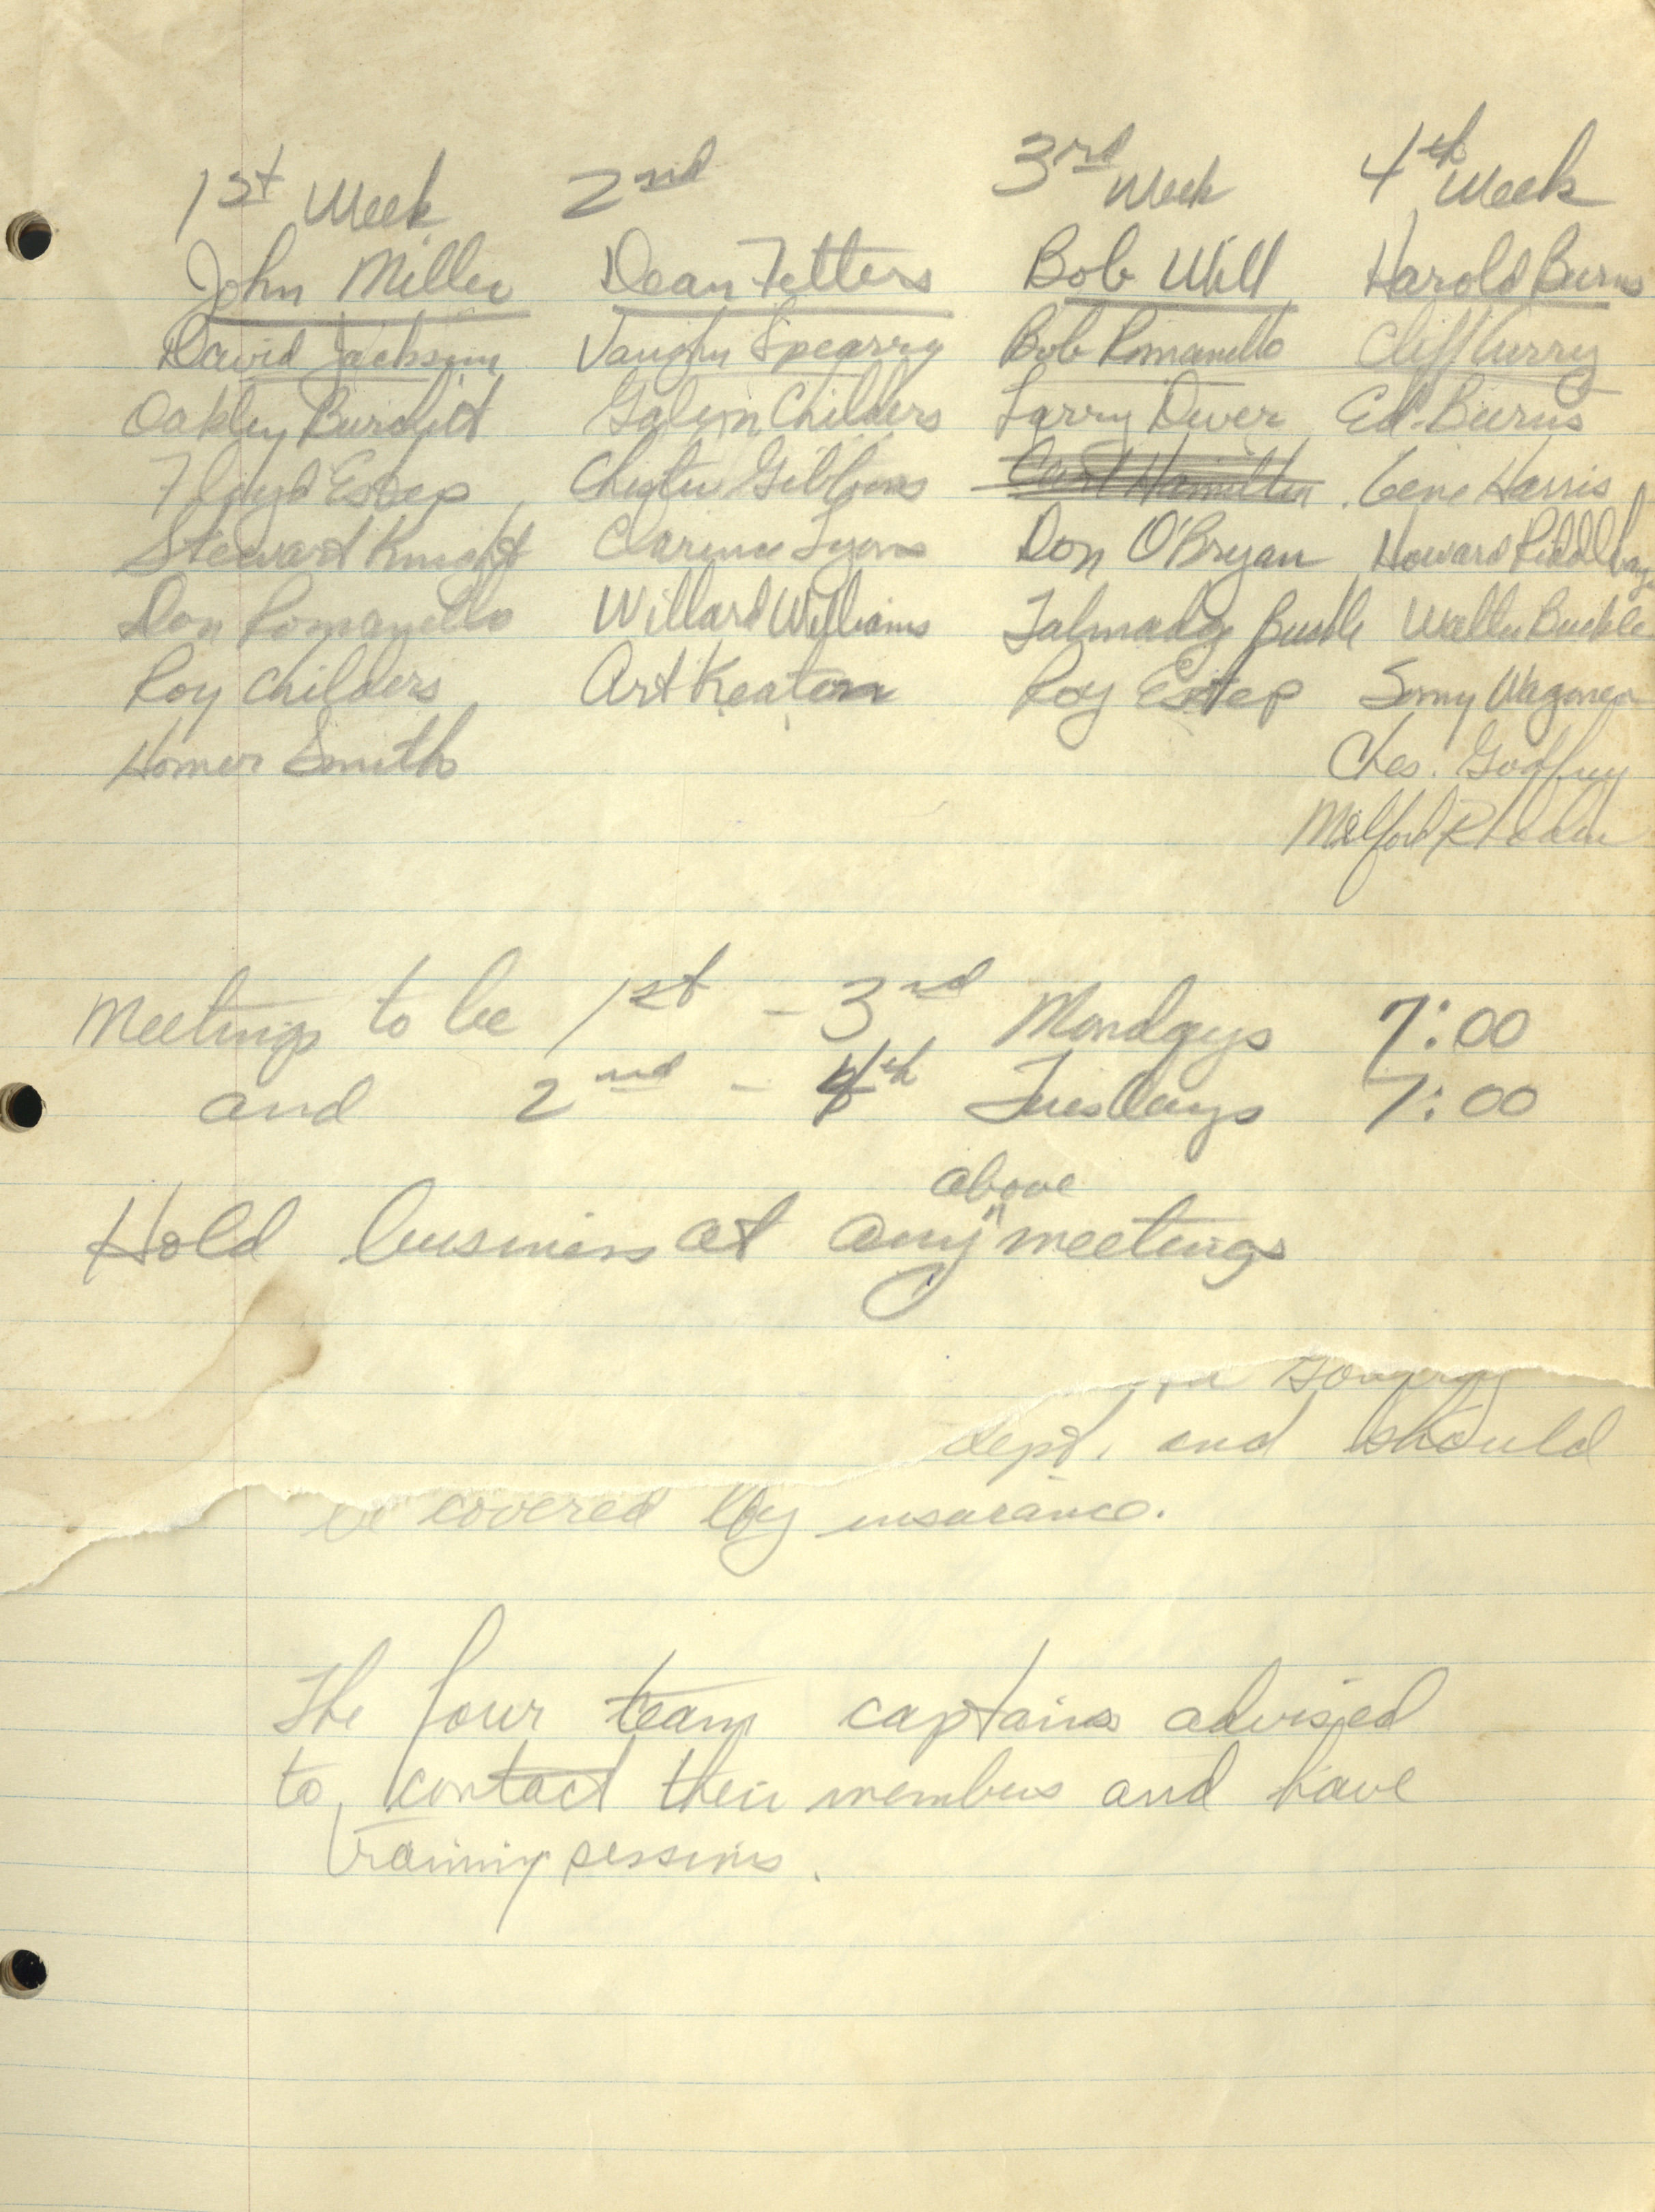 1st Week 2nd 3rd Week 4th Week
John Miller Dean Fetters Bob Will Harold Burns
David Jackson Vaughn Spearry Bob Romanello Cliff Curry
Oakley Burdett Galen Childers Larry Diver Ed Burns
Floyd Estep Chester Gibbons Hamilton Gene Harris
Stewart Knight Clarence Lyons Don O'Bryan Howard
Don Romanello Willard Williams Talmadge Walter
Roy Childers Art Keaton Roy Estep Sonny
Homer Smith Chas. Godfrey
Milford
Meetings to be 1st - 3rd Mondays 7:00
and 2nd - 4th Tuesdays 7:00
above
Hold business at any meetings
dept. and should
be covered by insurance.
The four team captains advised
to contact their members and have
training sessions.